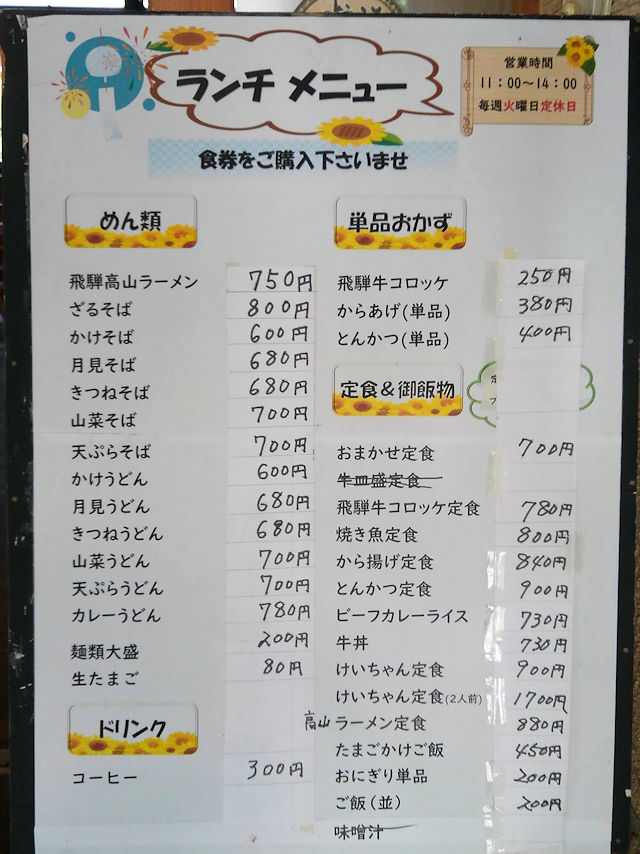 ランチ メニュー
営業時間
11：00〜14：00
毎週火曜日定休日
食券をご購入下さいませ
めん類
飛騨高山ラーメン 750円
ざるそば 800円
かけそば 600円
月見そば 680円
きつねそば 680円
山菜そば 700円
天ぷらそば 700円
かけうどん 600円
月見うどん 680円
きつねうどん 680円
山菜うどん 700円
天ぷらうどん 700円
カレーうどん 780円
麺類大盛 200円
生たまご 80円
ドリンク
コーヒー 300円
単品おかず
飛騨牛コロッケ 250円
からあげ(単品) 380円
とんかつ(単品) 400円
定食＆御飯物
おまかせ定食 700円
牛皿盛定食
飛騨牛コロッケ定食 780円
焼き魚定食 800円
から揚げ定食 840円
とんかつ定食 900円
ビーフカレーライス 730円
牛丼 730円
けいちゃん定食 900円
けいちゃん定食(2人前) 1700円
高山ラーメン定食 880円
たまごかけご飯 450円
おにぎり単品 200円
ご飯(並) 200円
味噌汁